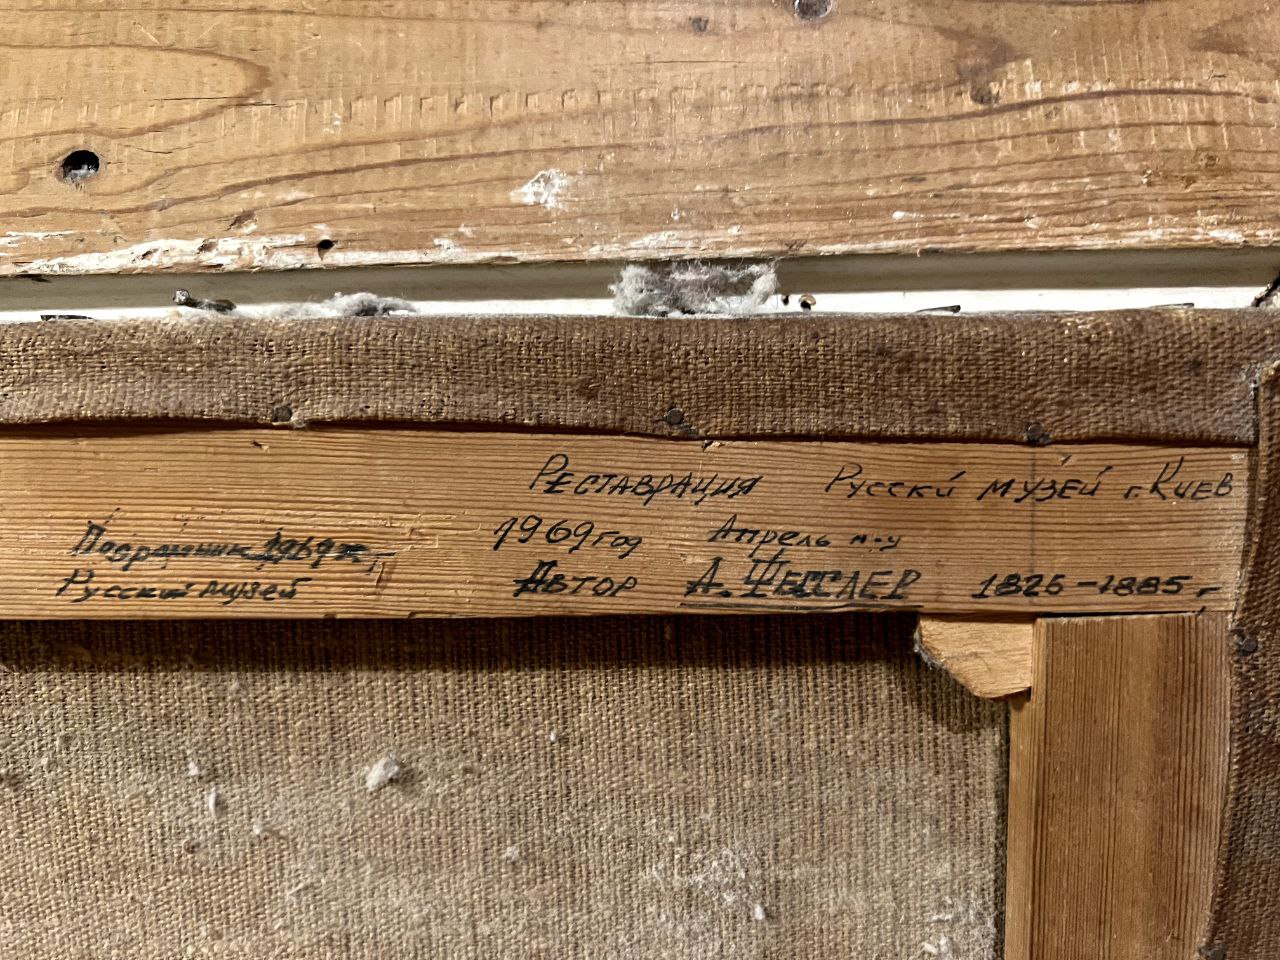 Реставрация Русски́ музей г. Киев
1969 год Апрель м-ц
Автор А. Шесслер 1826-1885 г
Подрамник 1969 г.
Русский музей